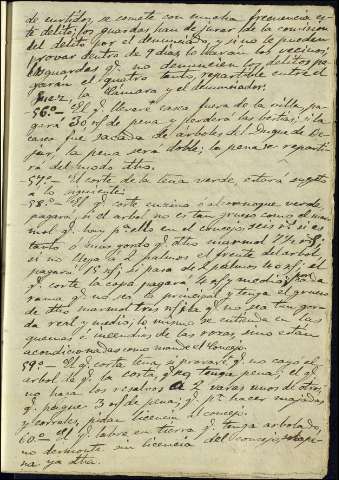 de curtidos, se comete con mucha frecuencia es-
te delito; los guardas han de jurar de la comision
del delito por el denunciado, y si no le pueden
provar dentro de 9 dias, lo haran los vecinos;
los guardas q. no denuncien los delitos pa-
garán el quatro tanto, repartible entre el
Juez, la Cámara y el denunciador.
56º.- El q. lleve casca fuera de la villa, pa-
gará 30 rs. de pena y perderá las bestias; si la
casca fue sacada de arboles del Duque de Be-
jar, la pena será doble; la pena se reparti-
rá del modo dho.
57º.- El corte de la leña verde, estará sujeto
a lo siguiente:
58º.- El q. corte encina ó alcornoque verde,
pagará, si el arbol no es tan grueso como el mar-
mol q. hay pª. ello en el concejo seis rs.; si es
tanto ó mas gordo q. dho marmol 7½ rs.;
si no llega a 2 palmos el frente del arbol,
pagará 15 rs; si pasa de 2 palmos 10 rs; el
q. corte la copa pagará 4 rs y medio; por cada
rama q. no sea la principal y tenga el grueso
de dho marmol tres rs; y la q. no sea tan gor-
da real y medio; lo mismo se entienda en las
quemas ó incendios de las rozas, sino están
acondicionadas como mande el Concejo.
59º.- El q. corte leña, si provare q. no cayó el
arbol q. la corta, q. no tenga pena; el q.
no haga los resalvos a 2 varas unos de otros
q. pague 3 rs de pena; q. pª. hacer majadas
y corrales, pidan licencia al concejo.
60º.- El q. labre en tierra q. tenga arbolado,
no desmonte sin licencia del concejo, so la pe-
na ya dha.